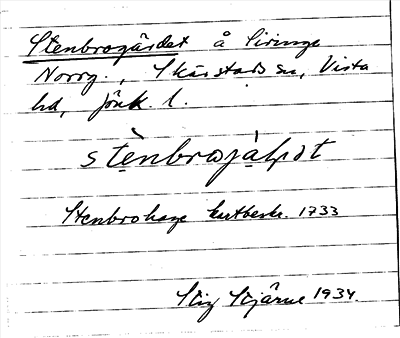 Stenbrogärdet å Siringe
Norrg., Skärstads sn, Vista
hd, Jönk. l.
Stenbrohage kartbeskr. 1733
Stig Stjärne 1934.